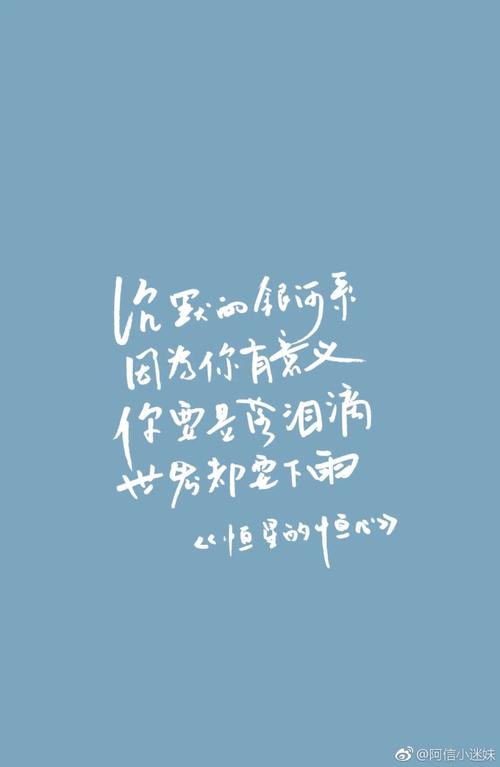 沉默的银河系
因为你有意义
你要是落泪滴
世界都要下雨
《恒星的恒心》
@阿信小迷妹